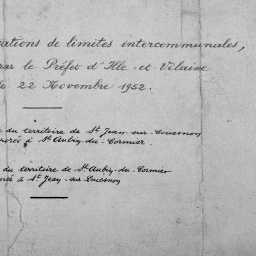 cations de limites intercommunales,
par le Préfet d'Ille-et-Vilaine
22 Novembre 1952.
du territoire de St Jean-sur-Couesnon
à St Aubin-du-Cormier.
du territoire de St Aubin-du-Cormier
à St Jean-sur-Couesnon